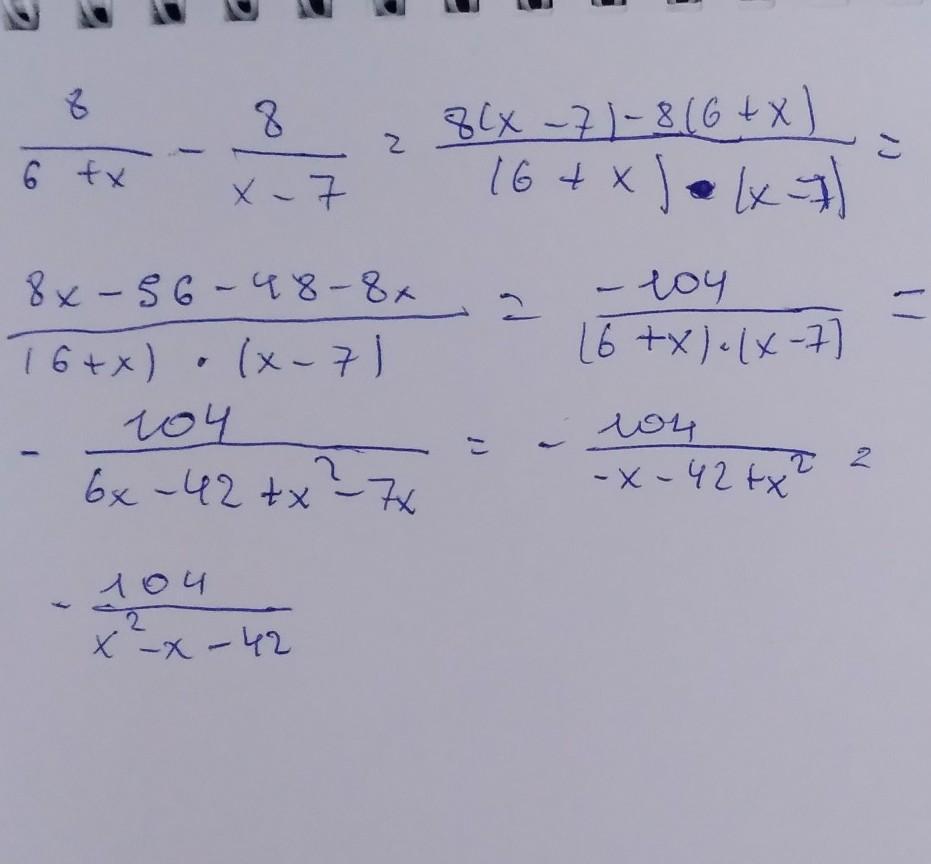 8/(6 +x) - 8/(x-7) = (8(x-7)-8(6+x))/((6+x)•(x-7)) =
(8x-56-48-8x)/((6+x)•(x-7)) = (-104)/((6+x)•(x-7)) =
- 104/(6x-42+x²-7x) = - 104/(-x-42+x²) =
- 104/(x²-x-42)